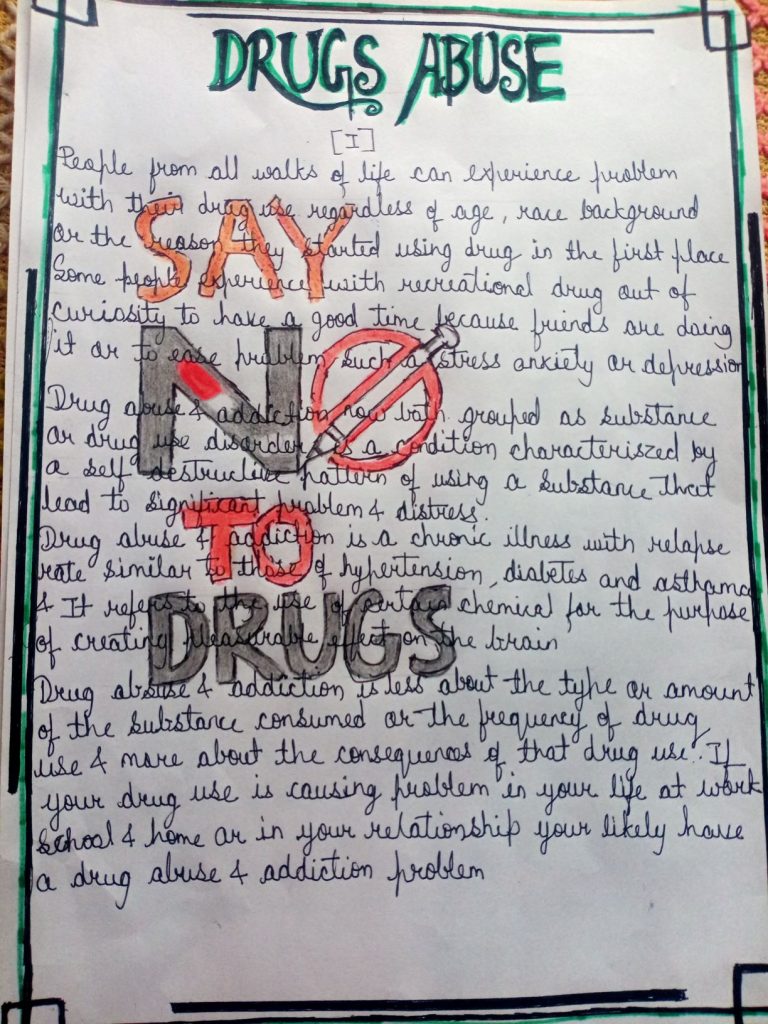 DRUGS ABUSE
[I]
People from all walks of life can experience problem
with their drug use regardless of age, race background
or the reason they started using drug in the first place
Some people experience with recreational drug out of
curiosity to have a good time because friends are doing
it or to ease problem such a stress anxiety or depression
Drug abuse & addiction now both grouped as substance
or drug use disorder is a condition characteriszed by
a self destructive pattern of using a substance that
lead to significant problem & distress.
Drug abuse & addiction is a chronic illness with relapse
rate similar to those of hypertension, diabetes and asthama
& It refers to the use of certain chemical for the purpose
of creating pleasurable effect on the brain
Drug abuse & addiction is less about the type or amount
of the substance consumed or the frequency of drug
use & more about the consequences of that drug use. If
your drug use is causing problem in your life at work
school & home or in your relationship your likely have
a drug abuse & addiction problem
SAY
NO
TO
DRUGS